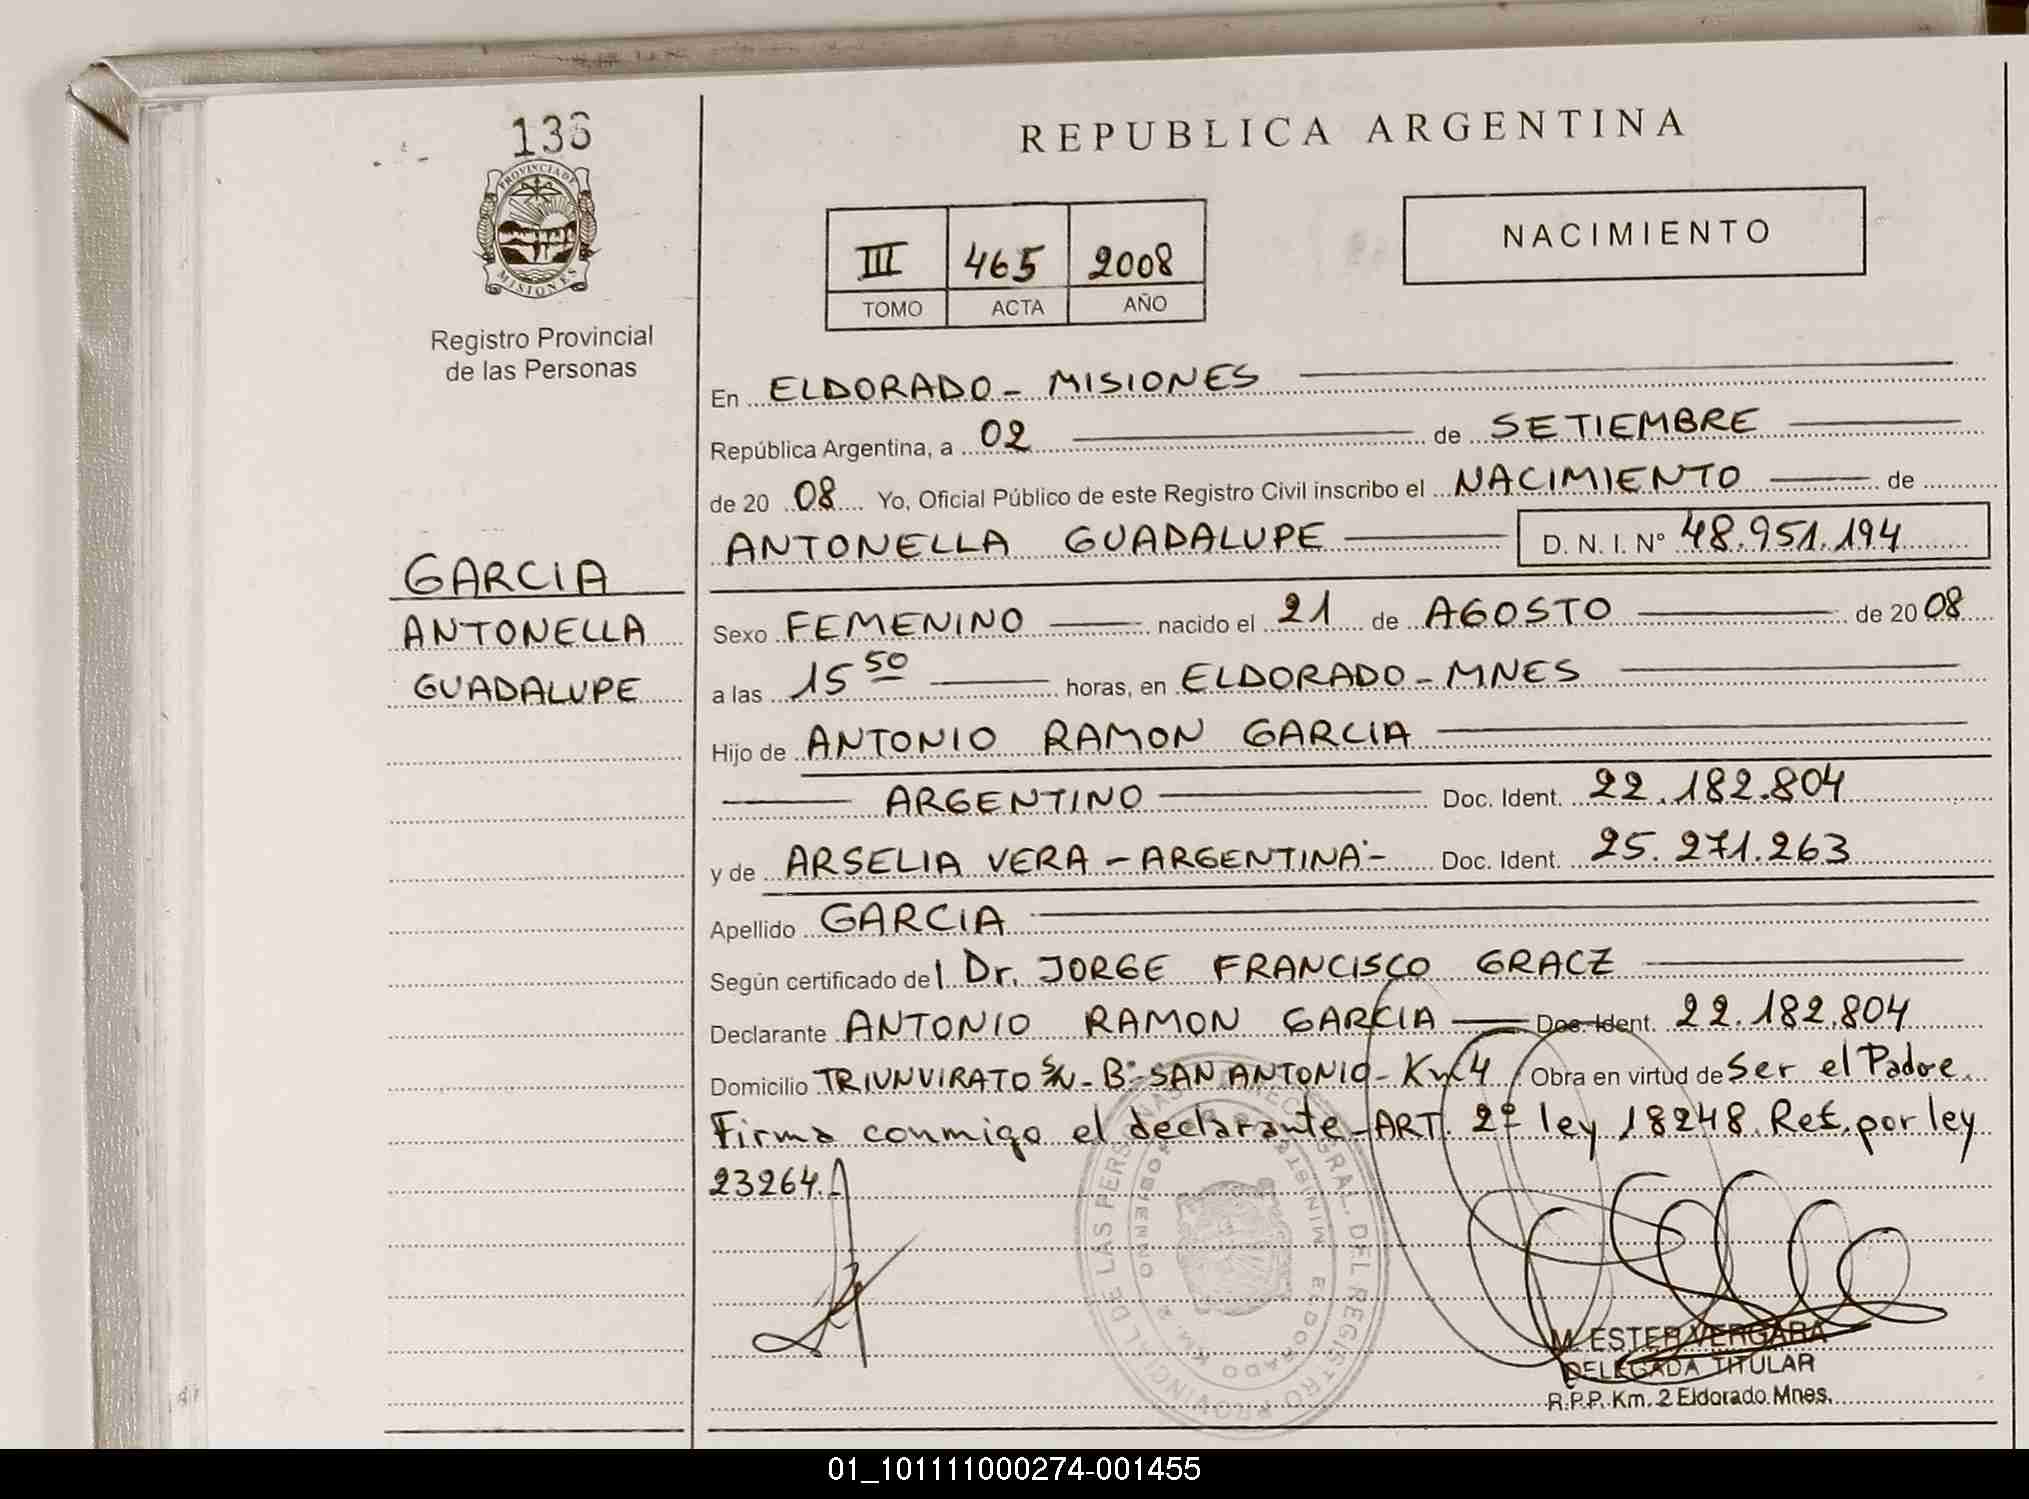 136
PROVINCIA DE
MISIONES
Registro Provincial
de las Personas
GARCIA
ANTONELLA
GUADALUPE
REPUBLICA ARGENTINA
III 465 2008
TOMO ACTA AÑO
NACIMIENTO
En ELDORADO - MISIONES
República Argentina, a 02 de SETIEMBRE
de 20 08 Yo, Oficial Público de este Registro Civil inscribo el NACIMIENTO de
ANTONELLA GUADALUPE D. N. I. Nº 48.951.194
Sexo FEMENINO nacido el 21 de AGOSTO de 20 08
a las 15 50 horas, en ELDORADO - MNES
Hijo de ANTONIO RAMON GARCIA
ARGENTINO Doc. Ident. 22.182.804
y de ARSELIA VERA - ARGENTINA.- Doc. Ident. 25.271.263
Apellido GARCIA
Según certificado del Dr. JORGE FRANCISCO GRACZ
Declarante ANTONIO RAMON GARCIA Doc. Ident. 22.182.804
Domicilio TRIUNVIRATO S/N - Bº SAN ANTONIO - Km 4 Obra en virtud de Ser el Padre.
Firma conmigo el declarante - ART. 2º ley 18248. Ref. por ley
23264.
M. ESTER VERGARA
DELEGADA TITULAR
R.P.P. Km. 2 Eldorado Mnes.
01_101111000274-001455